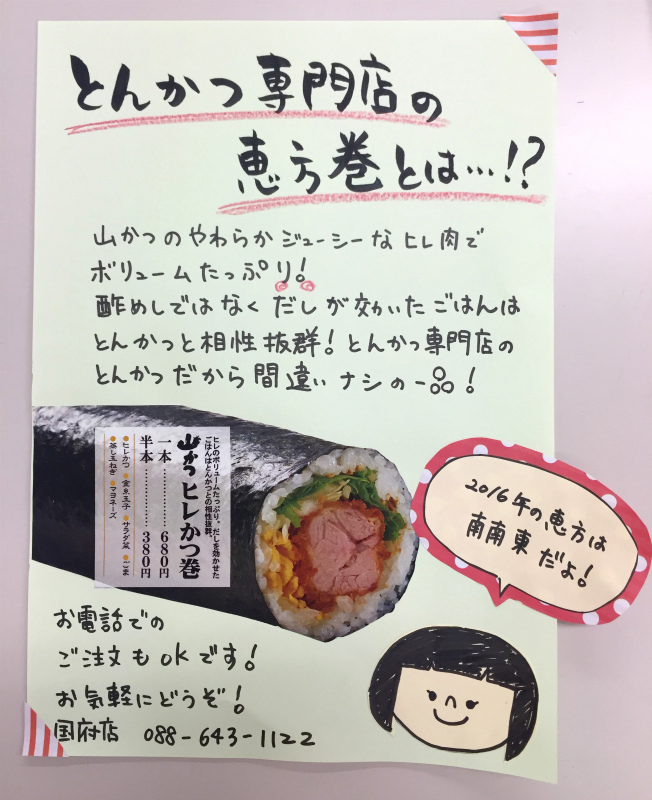 とんかつ専門店の
恵方巻とは…!?
山かつのやわらかジューシーなヒレ肉で
ボリュームたっぷり!
酢めしではなくだしが効いたごはんは
とんかつと相性抜群!とんかつ専門店の
とんかつだから間違いナシの一品!
ヒレのボリュームたっぷり。だしを効かせた
ごはんはとんかつとの相性抜群。
山かつ ヒレかつ巻
一本…………680円
半本…………380円
●ヒレかつ ●金糸玉子 ●サラダ菜 ●ごま
●蒸し玉ねぎ ●マヨネーズ
2016年の恵方は
南南東だよ!
お電話での
ご注文もOKです!
お気軽にどうぞ!
国府店 088-643-1122